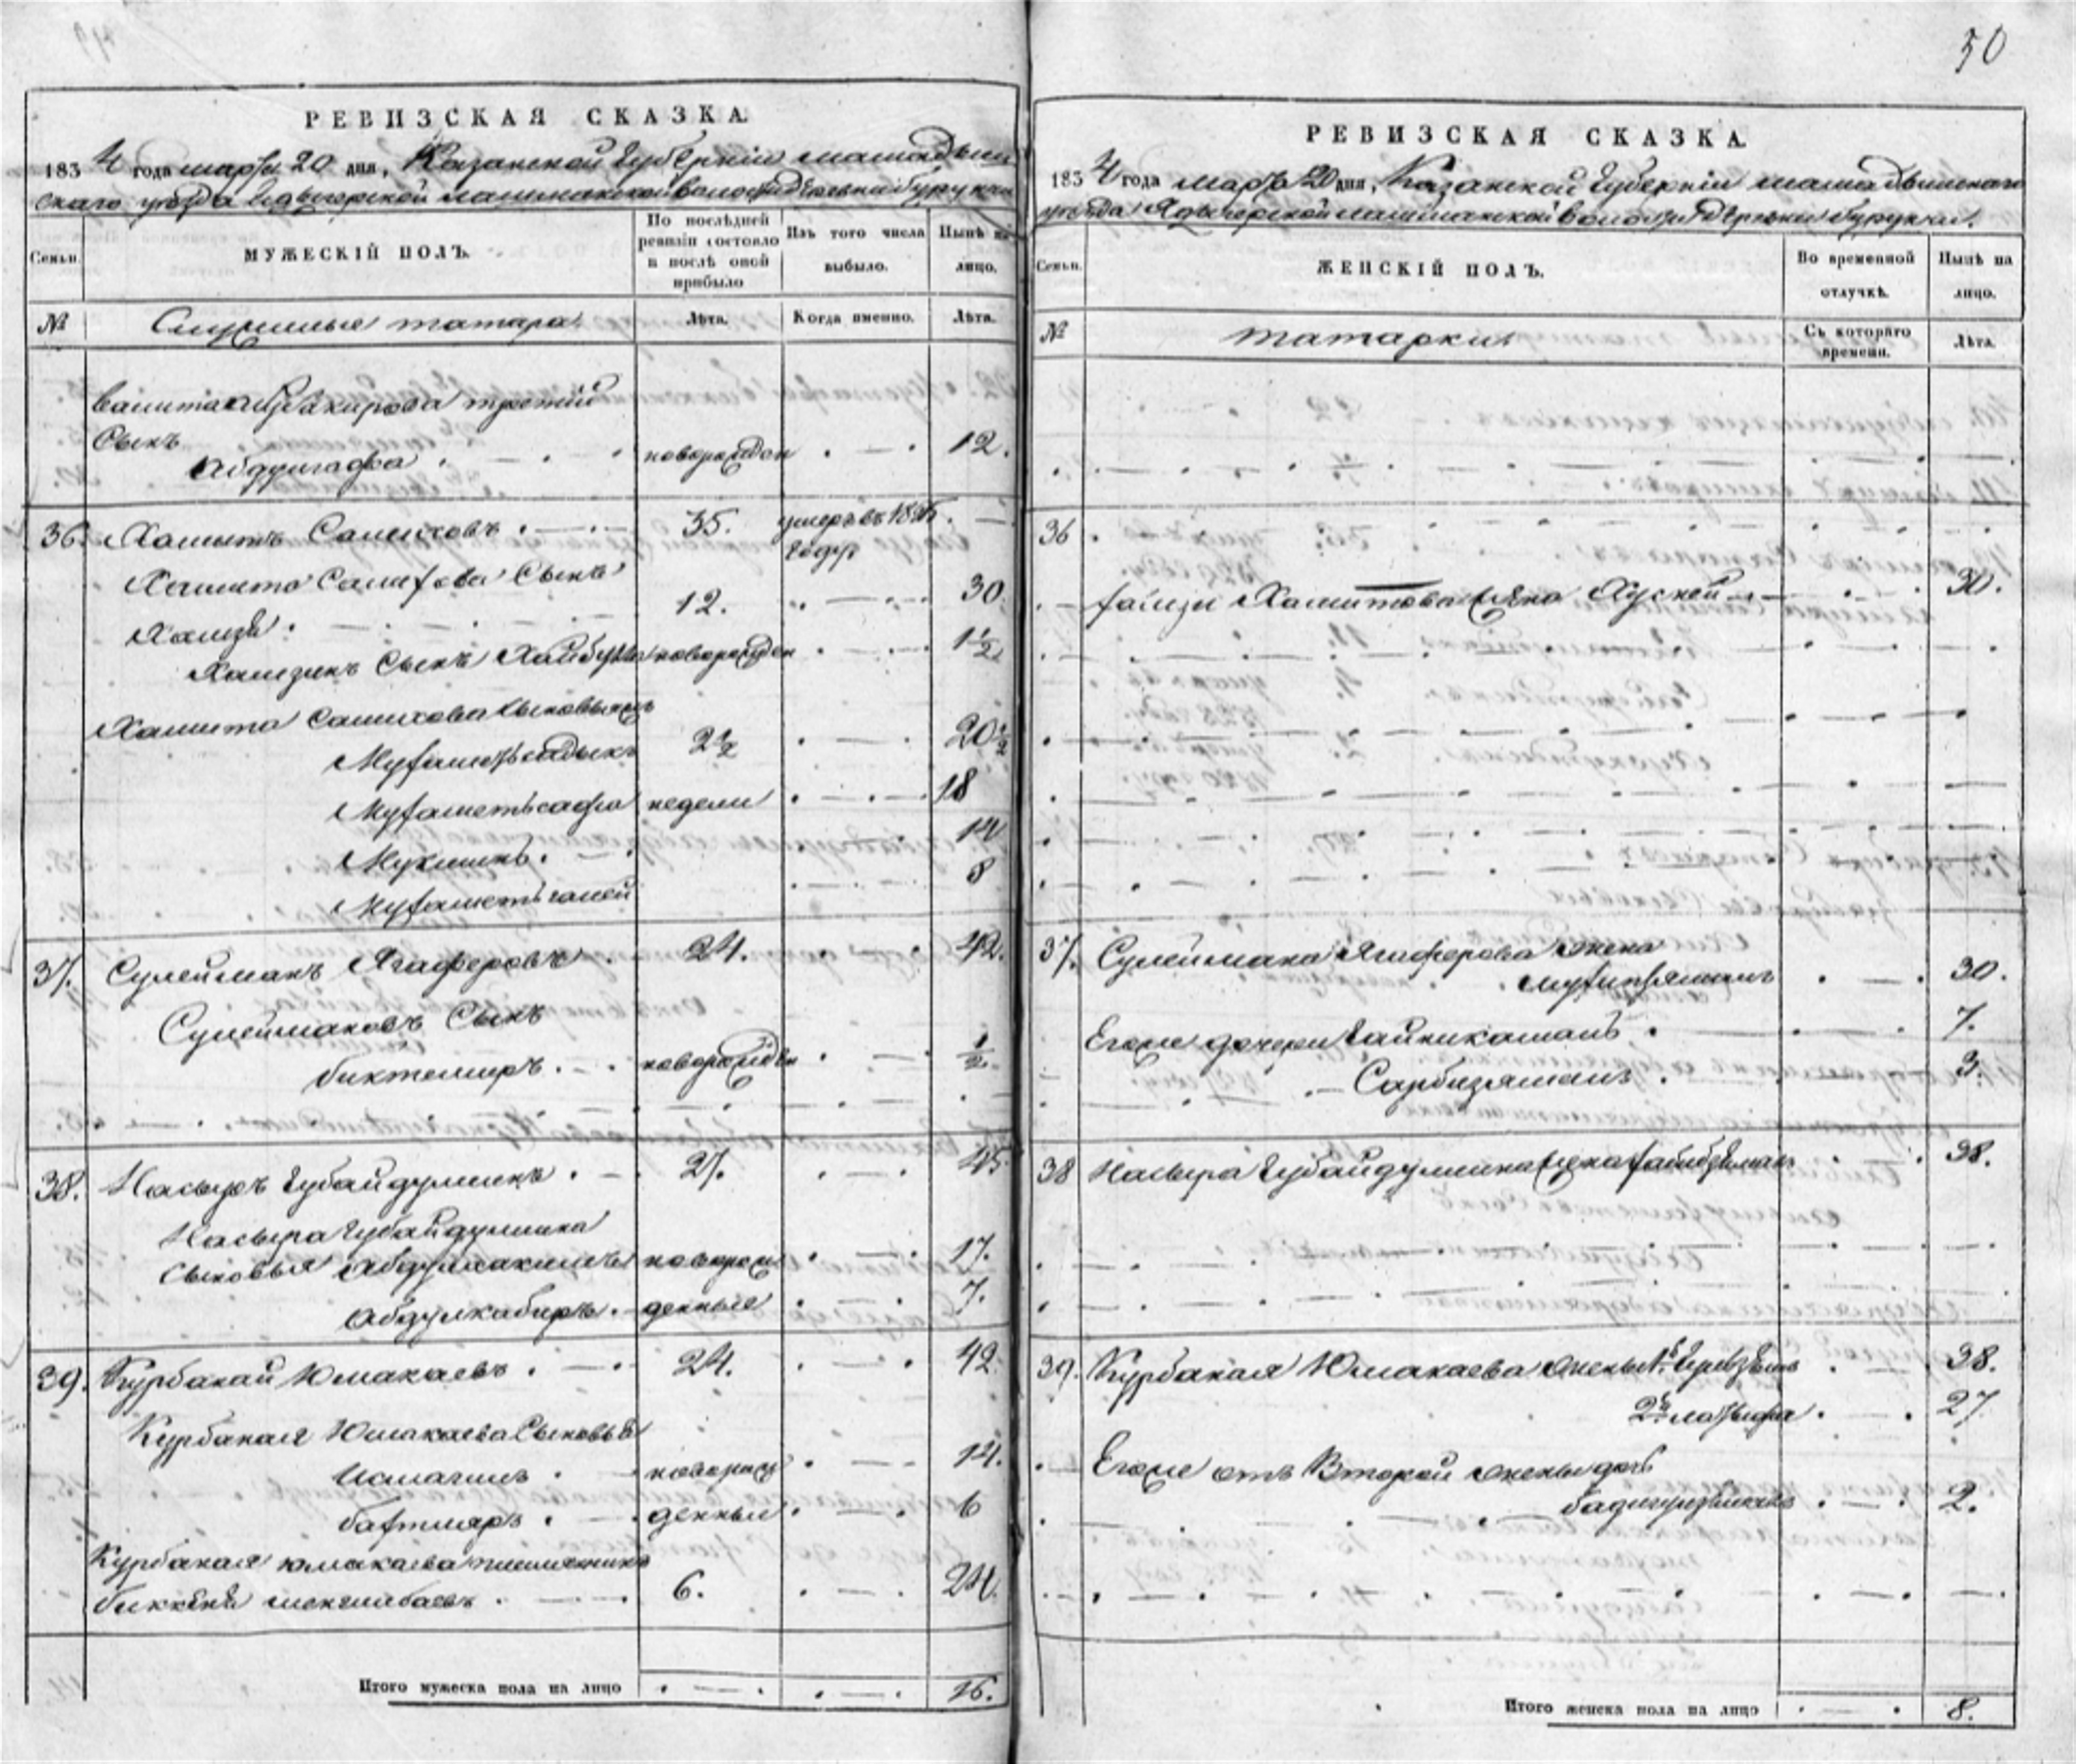 50
РЕВИЗСКАЯ СКАЗКА.
1834 года марта 20 дня, Казанской Губерніи мамадыш
скаго уезда Ядыгерской лашманской волости деревни бурунчи
Семьи.
МУЖЕСКІЙ ПОЛЪ.
По послѣдней ревизіи состояло и послѣ оной прибыло
Изъ того числа выбыло.
Нынѣ на лицо.
№
Служилые татара
Лѣта.
Когда именно.
Лѣта.
третий
Сынъ
новорожден 12.
36. Хамитъ Салиховъ 35. умеръ в 18
году
Хамита Салихова Сынъ
12. 30
Хамзинъ Сынъ новорожден 1½
Хамита Салихова сыновья
Мухаметьсадыкъ 2½ 20½
Мухаметьсафа недели 18
14
Мухаметьгалей 8
37. Сулейманъ Ягаферовъ 24. 42.
Сулеймановъ Сынъ
биктемиръ новорожден ½
38. Насыръ Губайдуллинъ 27. 45
Насыра Губайдуллина
сыновья Абдулхакимъ новорож 17.
Абдулкабиръ денные 7.
39. Курбанай Юмакаевъ 24. 42
Курбаная Юмакаева Сыновья
Исмагилъ новорож 14.
бахтияръ денныи 6
Курбаная юмакаева племянникъ
6. 24
Итого мужеска пола на лицо 16.
РЕВИЗСКАЯ СКАЗКА.
1834 года марта 20 дня, Казанской Губерніи мамадышскаго
уезда Ядыгерской лашманской волости деревни бурунчи.
Семьи.
ЖЕНСКІЙ ПОЛЪ.
Во временной отлучкѣ.
Нынѣ на лицо.
№
татарки
Съ котораго времени.
Лѣта.
36
Хамитова жена 30.
37. Сулеймана Ягаферова жена
30.
Егоже дочери 7.
3.
38 Насыра Губайдуллина жена 38.
39. Курбаная Юмакаева жены 1я 38.
2я латыфа 27
Егоже отъ Второй жены дочь
2.
Итого женска пола на лицо 8.